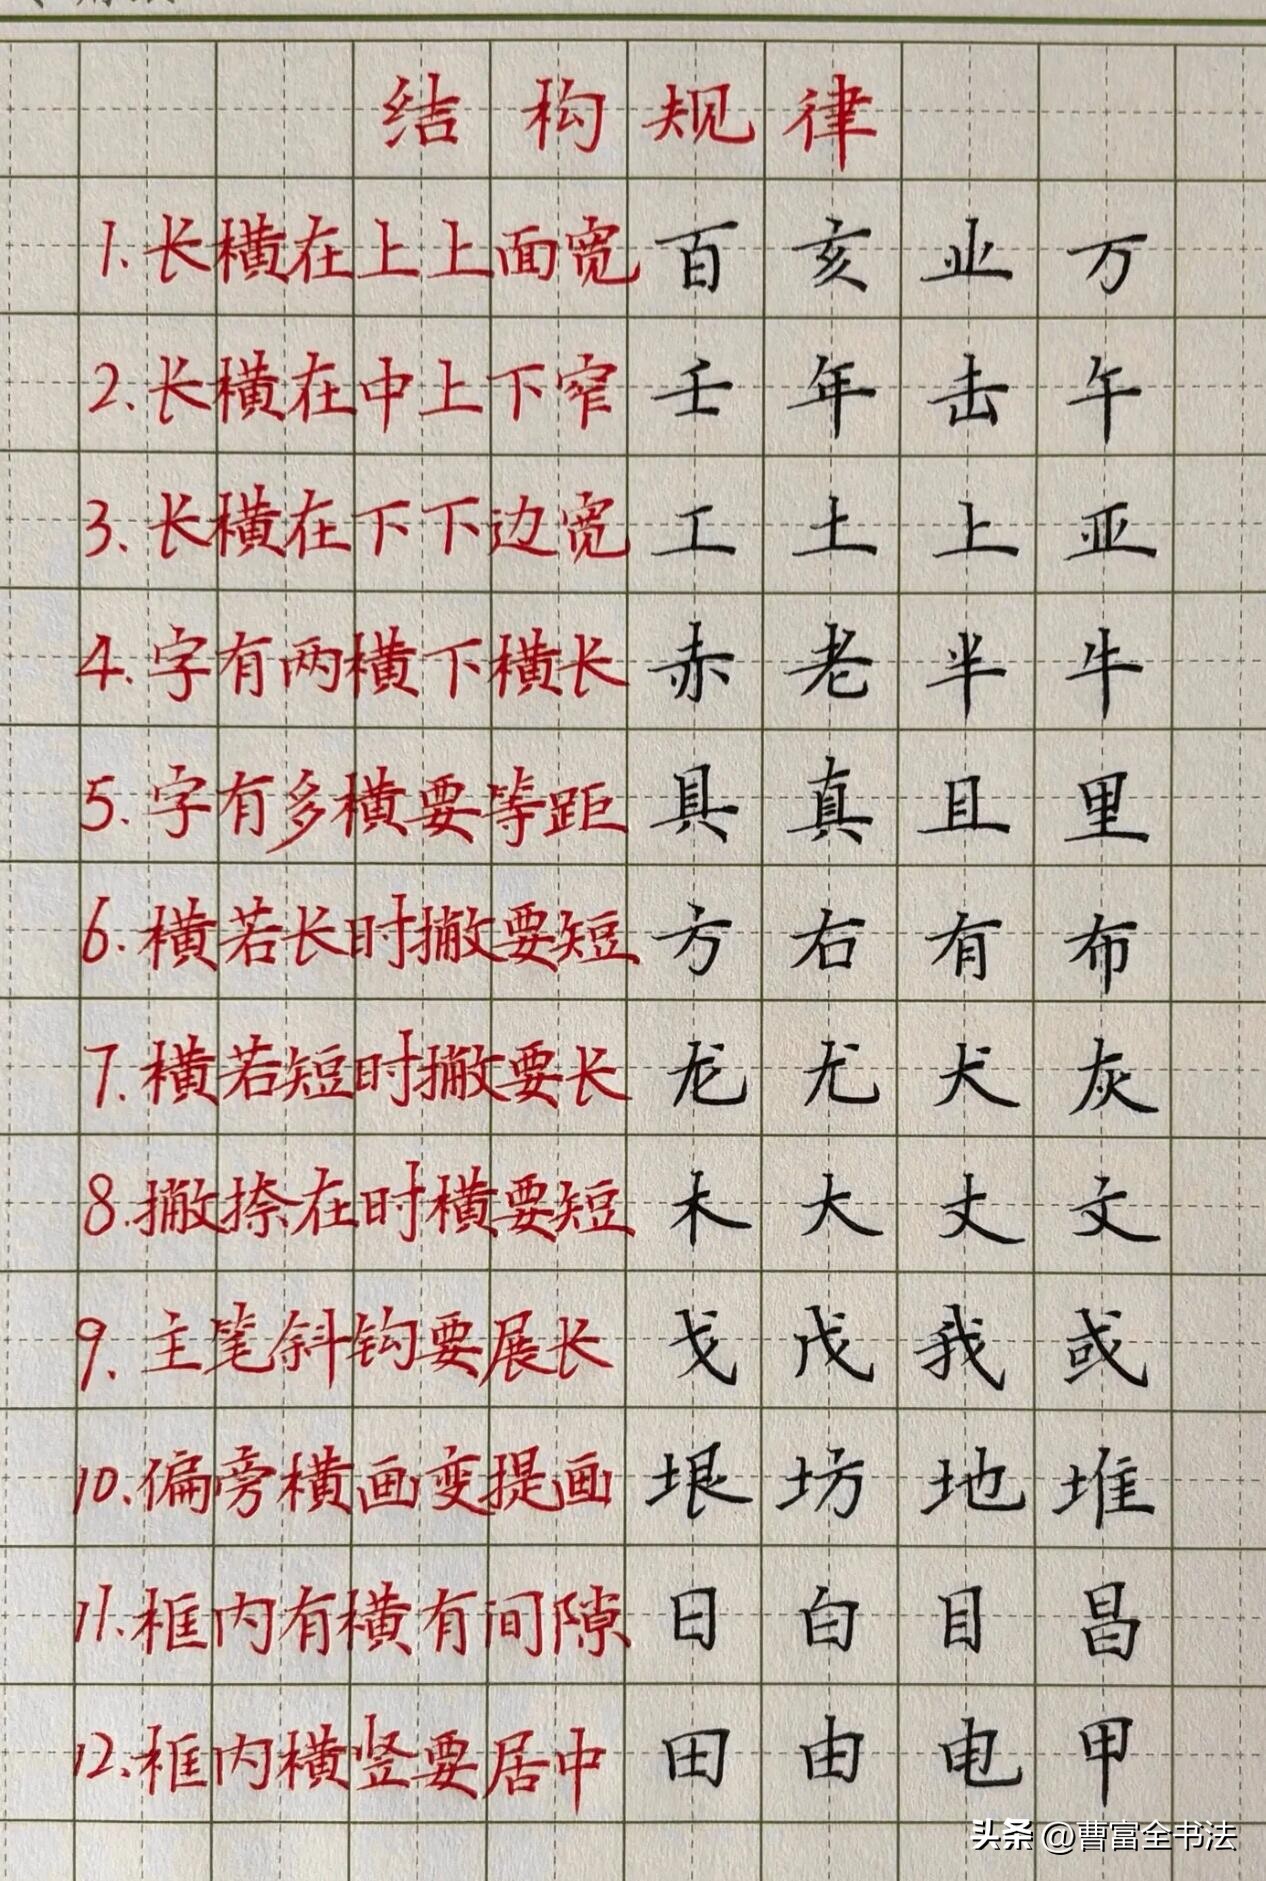 结构规律
1.长横在上上面宽 百 亥 业 万
2.长横在中上下窄 壬 年 击 午
3.长横在下下边宽 工 土 上 亚
4.字有两横下横长 赤 老 半 牛
5.字有多横要等距 具 真 且 里
6.横若长时撇要短 方 右 有 布
7.横若短时撇要长 龙 尤 犬 灰
8.撇捺在时横要短 木 大 丈 文
9.主笔斜钩要展长 戈 戊 我 或
10.偏旁横画变提画 垠 坊 地 堆
11.框内有横有间隙 日 白 目 昌
12.框内横竖要居中 田 由 电 甲
头条 @曹富全书法